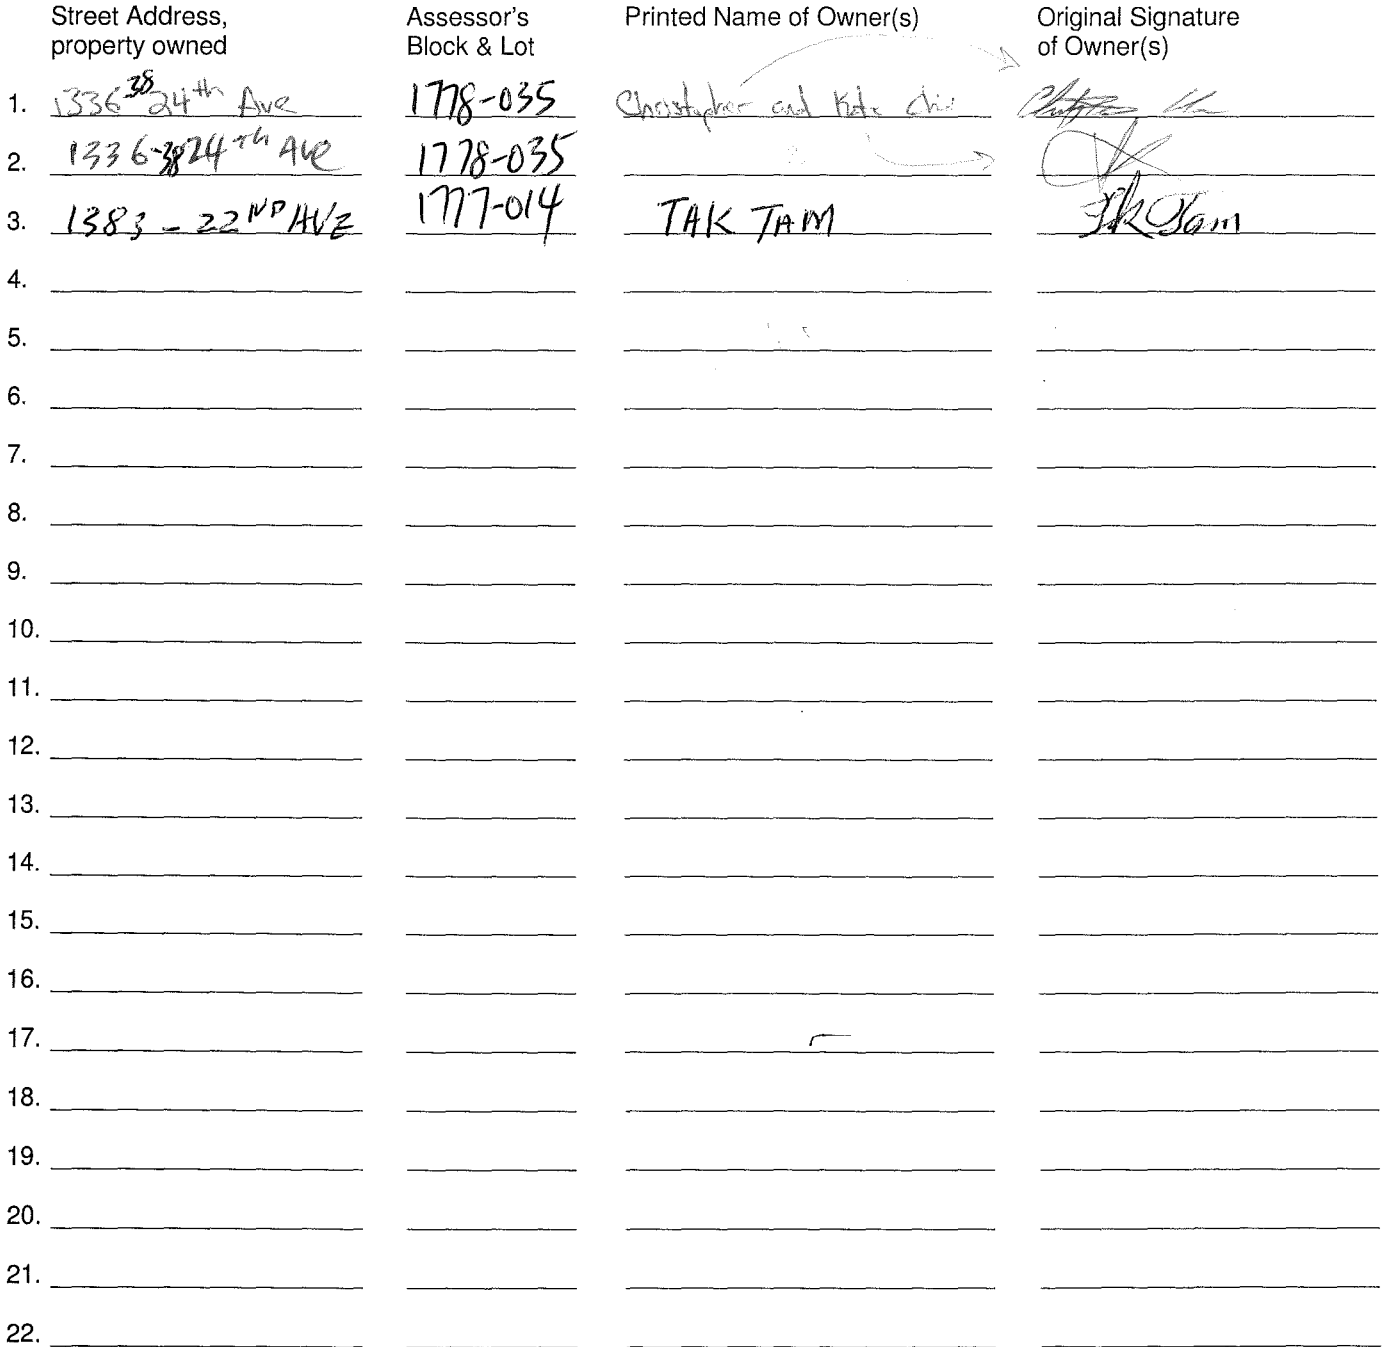 Street Address, property owned Assessor's Block & Lot Printed Name of Owner(s) Original Signature of Owner(s)
1. 1336-38 24th Ave 1778-035 Christopher and Kate Chin
2. 1336-38 24th Ave 1778-035
3. 1383 - 22ND AVE 1777-014 TAK TAM Tak Tam
4.
5.
6.
7.
8.
9.
10.
11.
12.
13.
14.
15.
16.
17.
18.
19.
20.
21.
22.